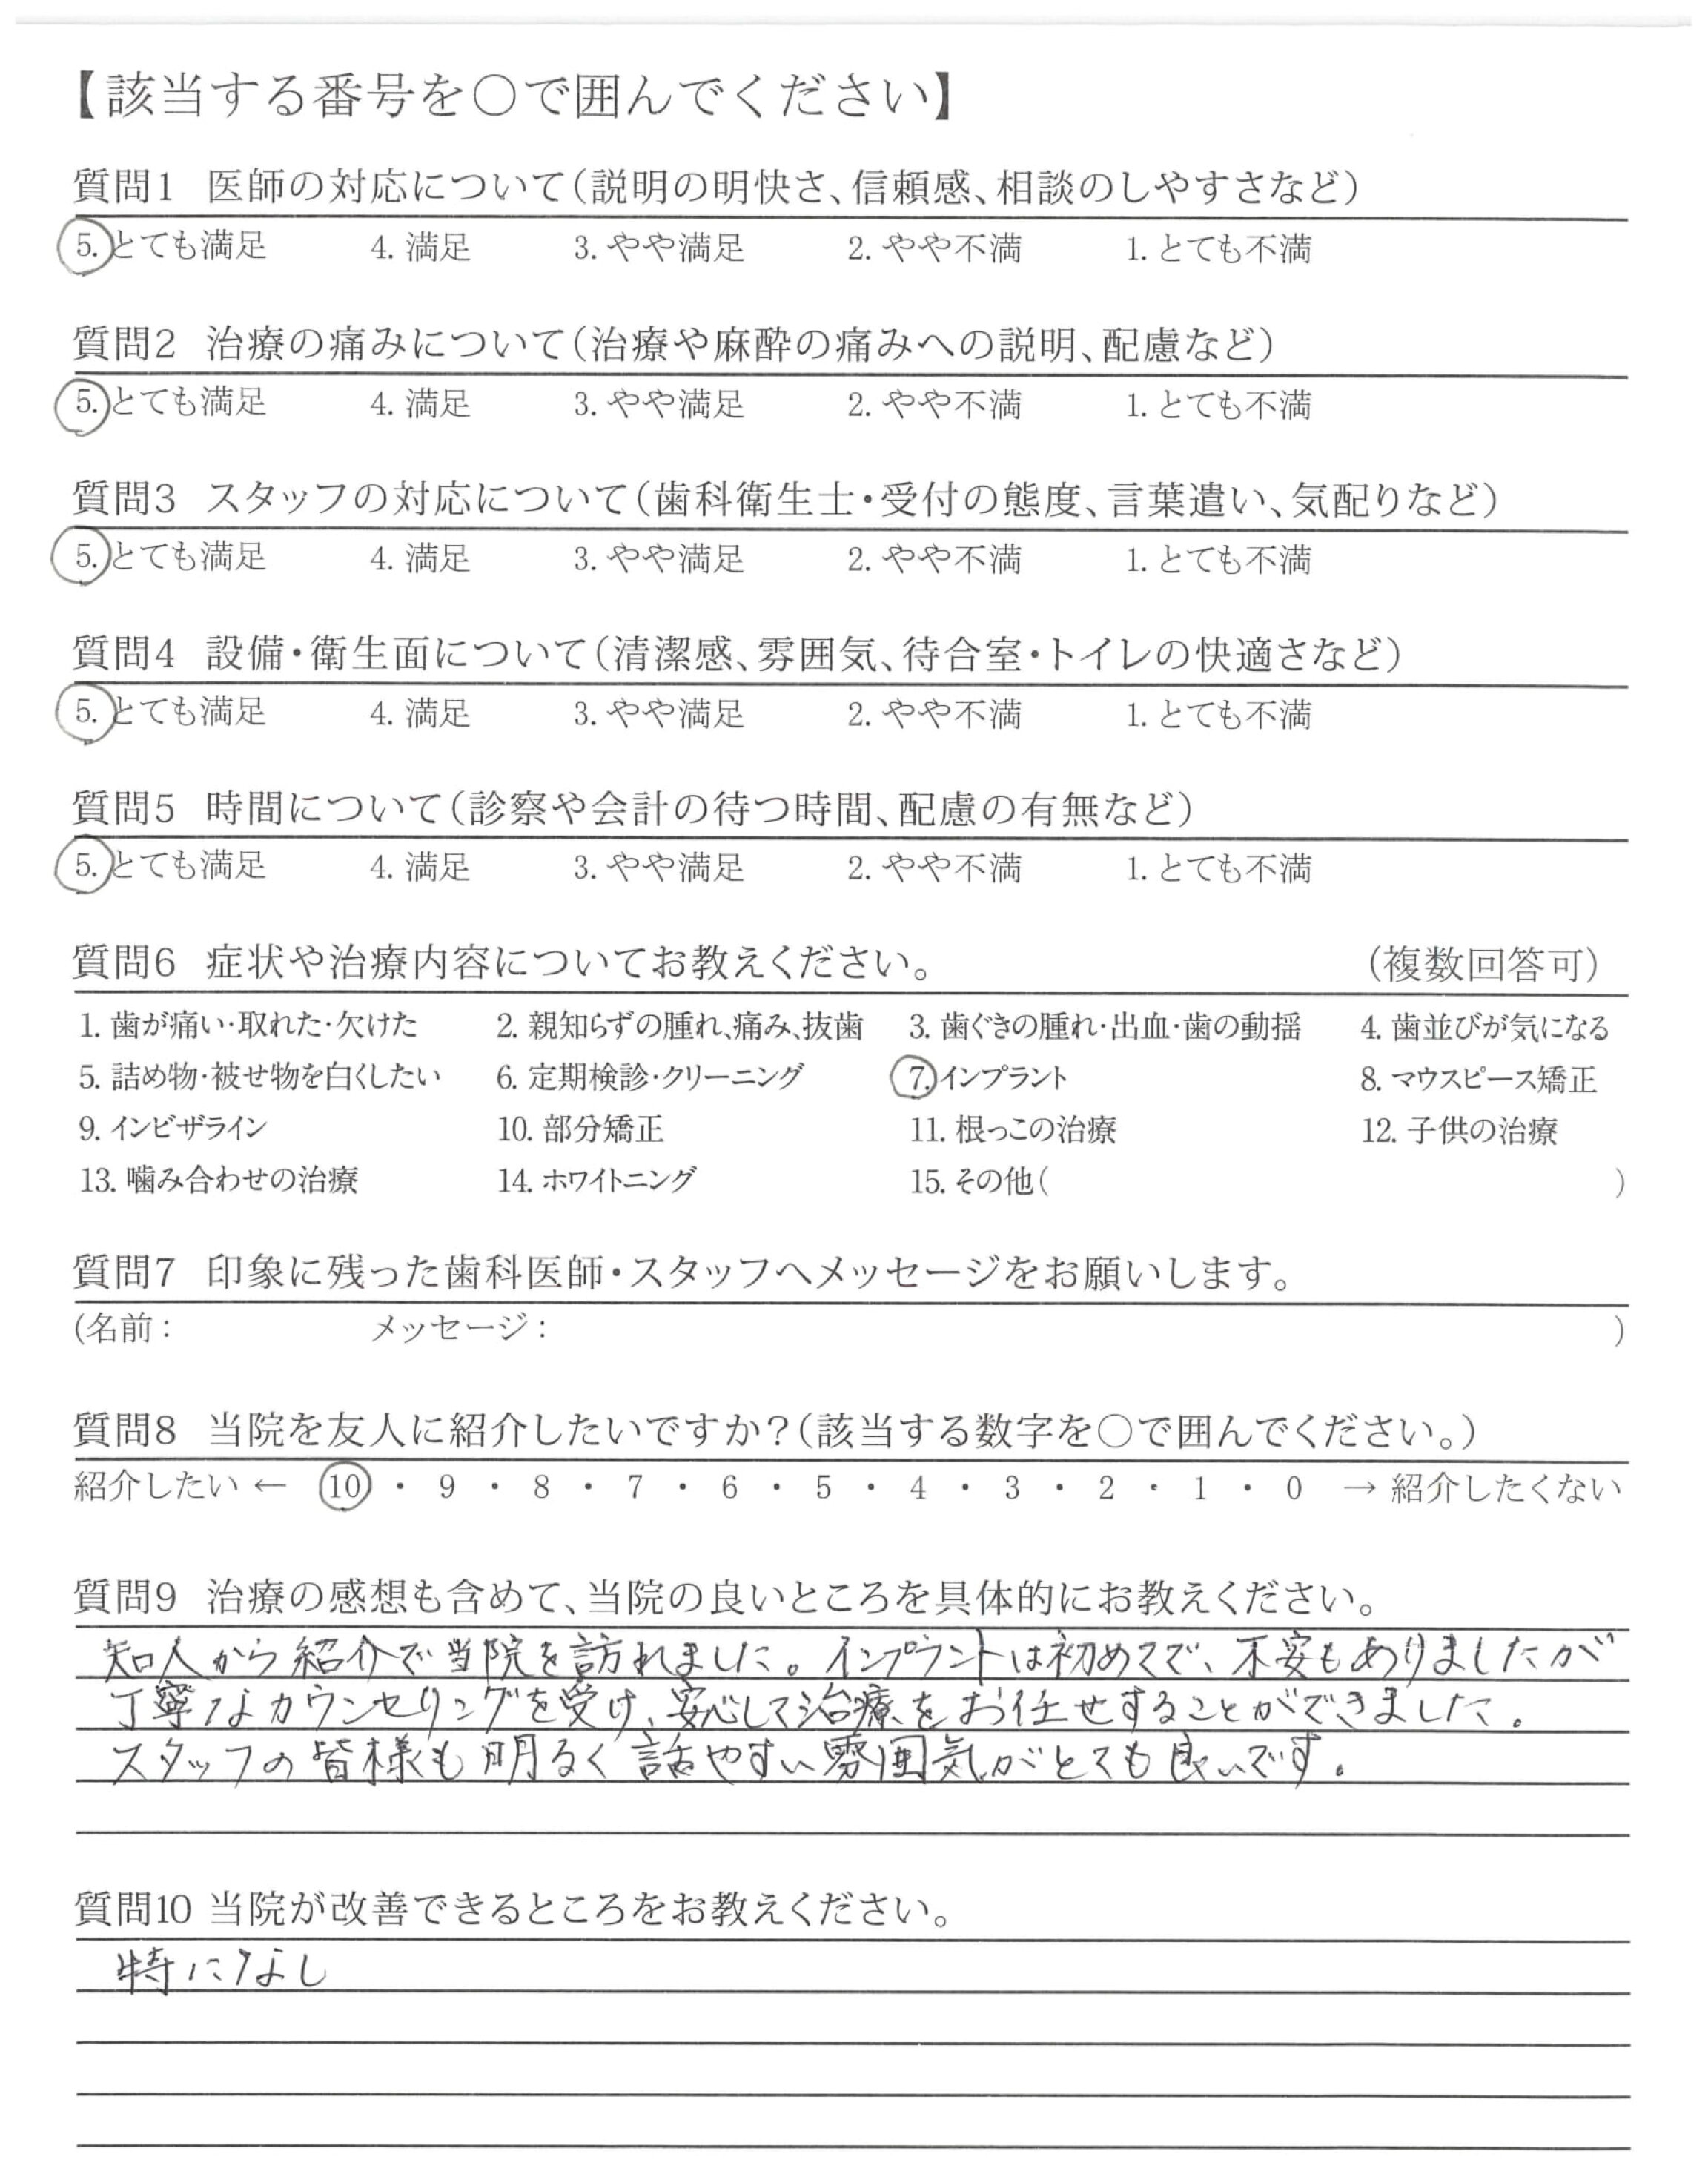 【該当する番号を○で囲んでください】
質問1 医師の対応について(説明の明快さ、信頼感、相談のしやすさなど)
5. とても満足 4. 満足 3. やや満足 2. やや不満 1. とても不満
質問2 治療の痛みについて(治療や麻酔の痛みへの説明、配慮など)
5. とても満足 4. 満足 3. やや満足 2. やや不満 1. とても不満
質問3 スタッフの対応について(歯科衛生士・受付の態度、言葉遣い、気配りなど)
5. とても満足 4. 満足 3. やや満足 2. やや不満 1. とても不満
質問4 設備・衛生面について(清潔感、雰囲気、待合室・トイレの快適さなど)
5. とても満足 4. 満足 3. やや満足 2. やや不満 1. とても不満
質問5 時間について(診察や会計の待つ時間、配慮の有無など)
5. とても満足 4. 満足 3. やや満足 2. やや不満 1. とても不満
質問6 症状や治療内容についてお教えください。 (複数回答可)
1. 歯が痛い・取れた・欠けた 2. 親知らずの腫れ、痛み、抜歯 3. 歯ぐきの腫れ・出血・歯の動揺 4. 歯並びが気になる
5. 詰め物・被せ物を白くしたい 6. 定期検診・クリーニング 7. インプラント 8. マウスピース矯正
9. インビザライン 10. 部分矯正 11. 根っこの治療 12. 子供の治療
13. 噛み合わせの治療 14. ホワイトニング 15. その他( )
質問7 印象に残った歯科医師・スタッフへメッセージをお願いします。
(名前: メッセージ: )
質問8 当院を友人に紹介したいですか?(該当する数字を○で囲んでください。)
紹介したい ← 10 ・ 9 ・ 8 ・ 7 ・ 6 ・ 5 ・ 4 ・ 3 ・ 2 ・ 1 ・ 0 → 紹介したくない
質問9 治療の感想も含めて、当院の良いところを具体的にお教えください。
知人から紹介で当院を訪れました。インプラントは初めてで、不安もありましたが
丁寧なカウンセリングを受け、安心して治療をお任せすることができました。
スタッフの皆様も明るく話やすい雰囲気がとても良いです。
質問10 当院が改善できるところをお教えください。
特になし